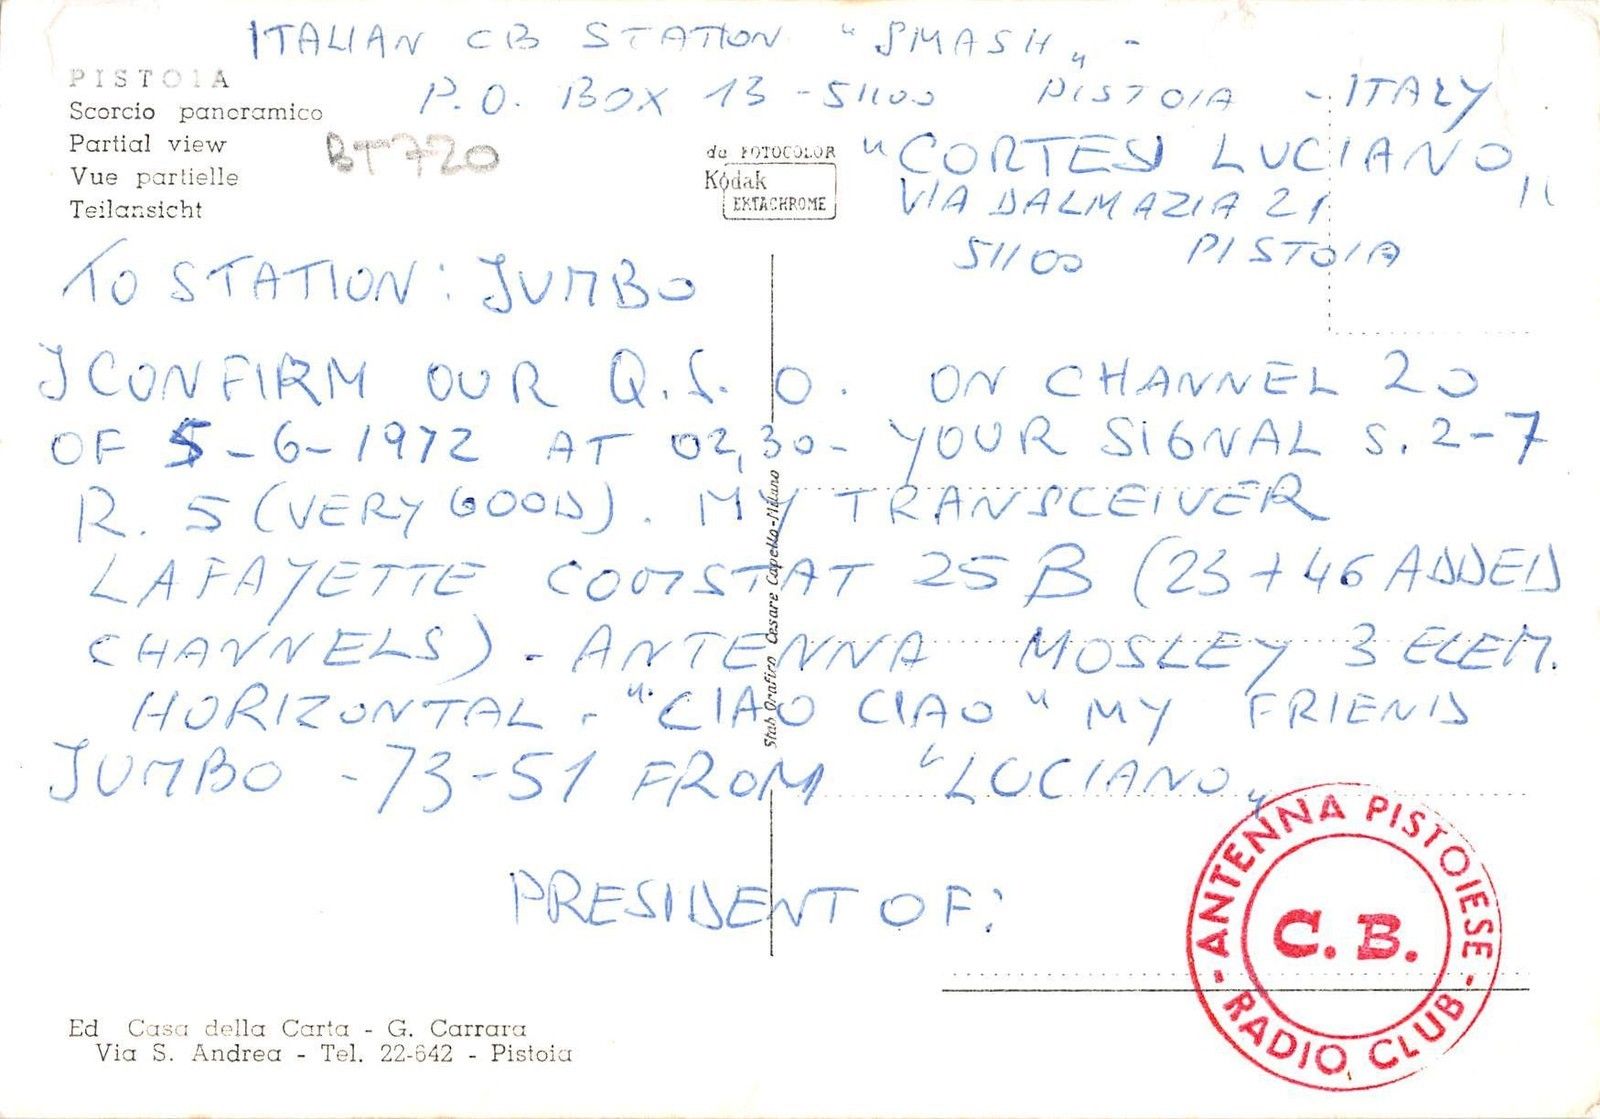 ITALIAN CB STATION "SMASH" -
P.O. BOX 13 - 51100 PISTOIA - ITALY
PISTOIA
Scorcio panoramico
Partial view
Vue partielle
Teilansicht
BT720
da FOTOCOLOR
Kodak
EKTACHROME
"CORTESI LUCIANO"
VIA DALMAZIA 21
51100 PISTOIA
TO STATION: JUMBO
I CONFIRM OUR Q.S.O. ON CHANNEL 20
OF 5-6-1972 AT 02,30 - YOUR SIGNAL S. 2-7
R. 5 (VERY GOOD). MY TRANSCEIVER
LAFAYETTE COMSTAT 25 B (23 + 46 ADDED
CHANNELS) - ANTENNA MOSLEY 3 ELEM.
HORIZONTAL - "CIAO CIAO" MY FRIEND
JUMBO - 73-51 FROM "LUCIANO"
PRESIDENT OF:
ANTENNA PISTOIESE
C.B.
- RADIO CLUB -
Stab Grafico Cesare Capello-Milano
Ed Casa della Carta - G. Carrara
Via S. Andrea - Tel. 22-642 - Pistoia